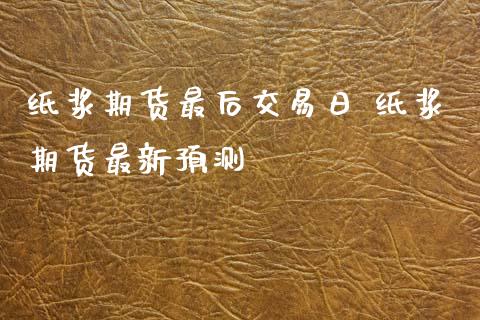 纸浆期货最后交易日 纸浆
期货最新预测